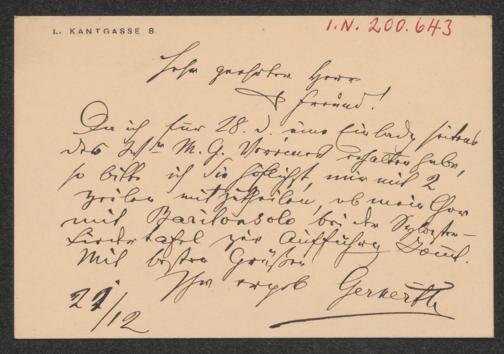 I. KANTGASSE 8.
I.N. 200.643
Sehr geehrter Herr
& Freund!
Da ich für 28. d. eine Einladg seitens
des M. G. Vereines erhalten habe,
so bitte ich Sie höflichst, mir mit 2
Zeilen mitzutheilen, ob mein Chor
mit Baritonsolo bei der Sylvester-
Liedertafel zur Aufführg kömmt.
Mit besten Grüßen
Ihr ergeb
27/12